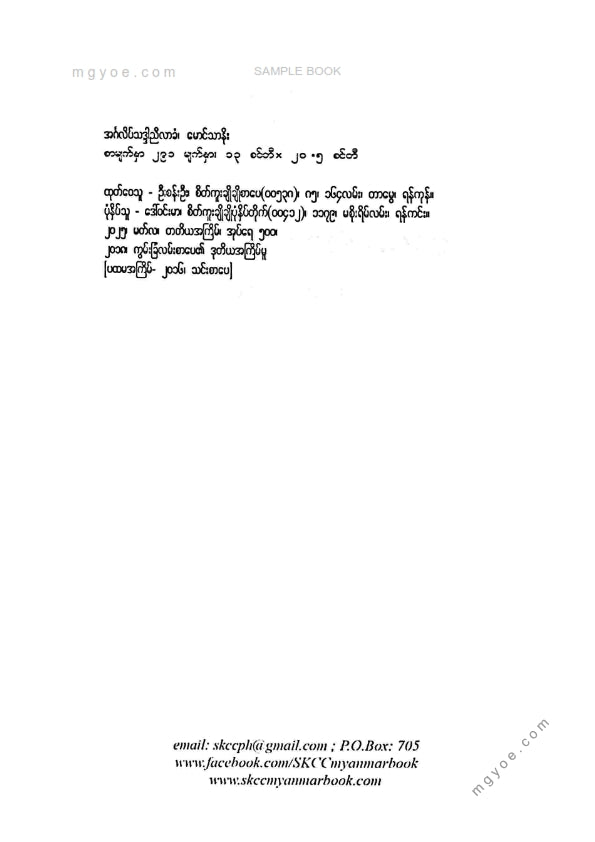 mgyoe.com
SAMPLE BOOK
အင်္ဂလိပ်သဒ္ဒါညီလာခံ၊ မောင်သာနိုး
စာမျက်နှာ ၂၉၁ မျက်နှာ၊ ၁၃ စင်တီ× ၂၀ ·၅ စင်တီ
ထုတ်ဝေသူ - ဦးစန်းဦး၊ စိတ်ကူးချိုချိုစာပေ(၀၀၅၃၈)၊ ဂ၅၊ ၁၆၄လမ်း၊ တာမွေ၊ ရန်ကုန်။
ပုံနှိပ်သူ - ဒေါ်ဝင်းမာ၊ စိတ်ကူးချိုချိုပုံနှိပ်တိုက်(၀၀၄၁၂)၊ ၁၁၇၉၊ မစိုးရိမ်လမ်း၊ ရန်ကင်း။
၂၀၂၅၊ မတ်လ၊ တတိယအကြိမ်၊ အုပ်ရေ ၅၀၀၊
၂၀၁၈၊ ကွမ်းခြံလမ်းစာပေ၏ ဒုတိယအကြိမ်မူ
[ပထမအကြိမ်- ၂၀၁၆၊ သင်းစာပေ]
email: skccph@gmail.com ; P.O.Box: 705
www.facebook.com/SKCCmyanmarbook
www.skccmyanmarbook.com
mgyoe.com